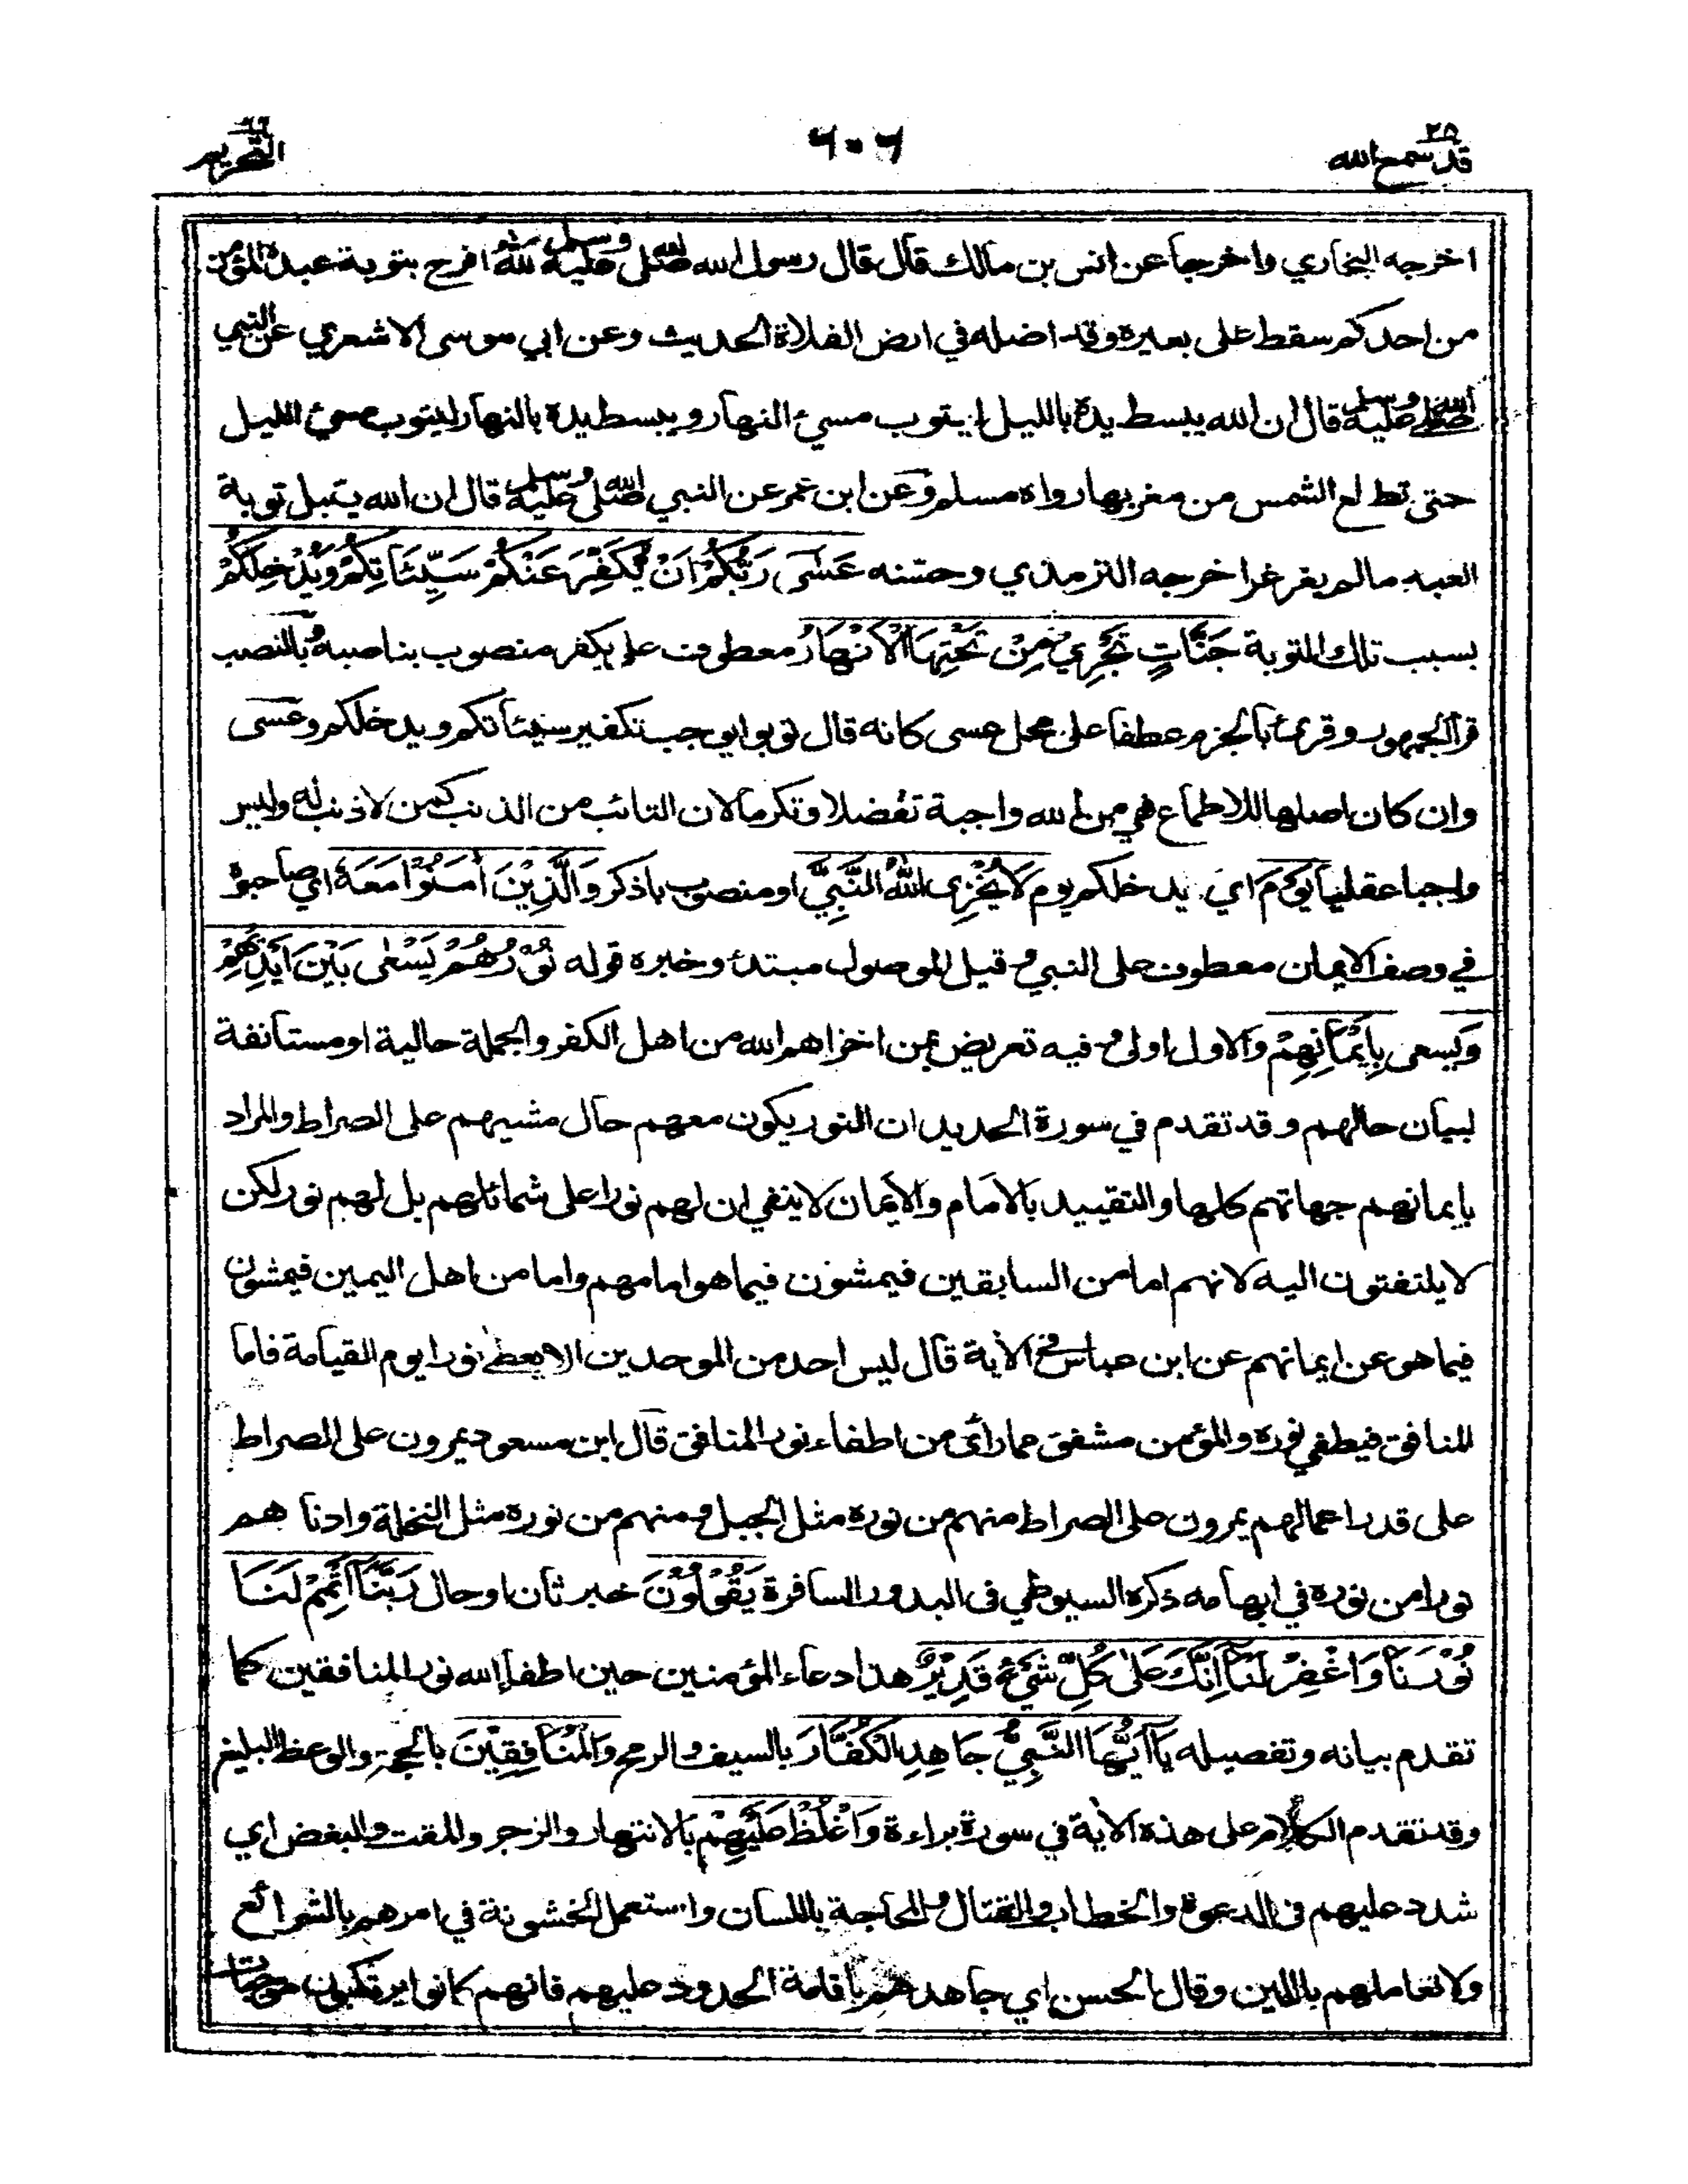 ٢٨ قد سمع الله
٤٠٦
٦٦ التحريم
اخرجه البخاري واخرجا عن انس بن مالك قال قال رسول الله صلى الله عليه وسلم لله افرح بتوبة عبده المؤمن
من احدكم سقط على بعيره وقد اضله في ارض الفلاة الحديث وعن ابي موسى الاشعري عن النبي
صلى الله عليه وسلم قال ان الله يبسط يده بالليل ليتوب مسيء النهار ويبسط يده بالنهار ليتوب مسيء الليل
حتى تطلع الشمس من مغربها رواه مسلم وعن ابن عمر عن النبي صلى الله عليه وسلم قال ان الله يقبل توبة
العبد ما لم يغرغر اخرجه الترمذي وحسنه عَسٰى رَبُّكُمْ اَنْ يُّكَفِّرَ عَنْكُمْ سَيِّئَاتِكُمْ وَيُدْخِلَكُمْ
بسبب تلك التوبة جَنَّاتٍ تَجْرِيْ مِنْ تَحْتِهَا الْاَنْهَارُ معطوف على يكفر منصوب بناصبه وبالنصب
قرأ الجمهور وقرئ بالجزم عطفا على محل عسى كانه قال توبوا يوجب تكفير سيئاتكم ويدخلكم وعسى
وان كان اصلها للاطماع فهي من الله واجبة تفضلا وتكرما لان التائب من الذنب كمن لا ذنب له وليس
واجبا عقليا يَوْمَ اي يدخلكم يوم لَا يُخْزِى اللّٰهُ النَّبِيَّ او منصوب باذكر وَالَّذِيْنَ اٰمَنُوْا مَعَهٗ اي صاحبوه
في وصف الايمان معطوف على النبي وقيل الموصول مبتدء وخبره قوله نُوْرُهُمْ يَسْعٰى بَيْنَ اَيْدِيْهِمْ
وَيسعى بِاَيْمَانِهِمْ والاول اولى وفيه تعريض بمن اخزاهم الله من اهل الكفر والجملة حالية او مستأنفة
لبيان حالهم وقد تقدم في سورة الحديد ان النور يكون معهم حال مشيهم على الصراط والمراد
بايمانهم جهاتهم كلها والتقييد بالامام والايمان لا ينفي ان لهم نورا على شمائلهم بل لهم نور لكن
لا يلتفتون اليه لانهم اما من السابقين فيمشون فيما هو امامهم واما من اهل اليمين فيمشون
فيما هو عن ايمانهم عن ابن عباس في الاية قال ليس احد من الموحدين الا يعطى نورا يوم القيامة فاما
المنافق فيطفي نوره والمؤمن مشفق مما رأى من اطفاء نور المنافق قال ابن مسعود يمرون على الصراط
على قدر اعمالهم يمرون على الصراط منهم من نوره مثل الجبل ومنهم من نوره مثل النخلة وادناهم
نورا من نوره في ابهامه ذكره السيوطي في البدور السافرة يَقُوْلُوْنَ خبر ثان او حال رَبَّنَا اَتْمِمْ لَنَا
نُوْرَنَا وَاغْفِرْ لَنَا اِنَّكَ عَلٰى كُلِّ شَيْءٍ قَدِيْرٌ هذا دعاء المؤمنين حين اطفأ الله نور المنافقين كما
تقدم بيانه وتفصيله يَا اَيُّهَا النَّبِيُّ جَاهِدِ الْكُفَّارَ بالسيف والرمح وَالْمُنَافِقِيْنَ بالحجة والوعظ البليغ
وقد تقدم الكلام على هذه الاية في سورة براءة وَاغْلُظْ عَلَيْهِمْ بالانتهار والزجر والمقت والبغض اي
شدد عليهم في الدعوة والخطاب والقتال والمحاجة باللسان واستعمل الخشونة في امرهم بالشرائع
ولا تعاملهم باللين وقال الحسن اي جاهدهم باقامة الحدود عليهم فانهم كانوا يرتكبون موجبات